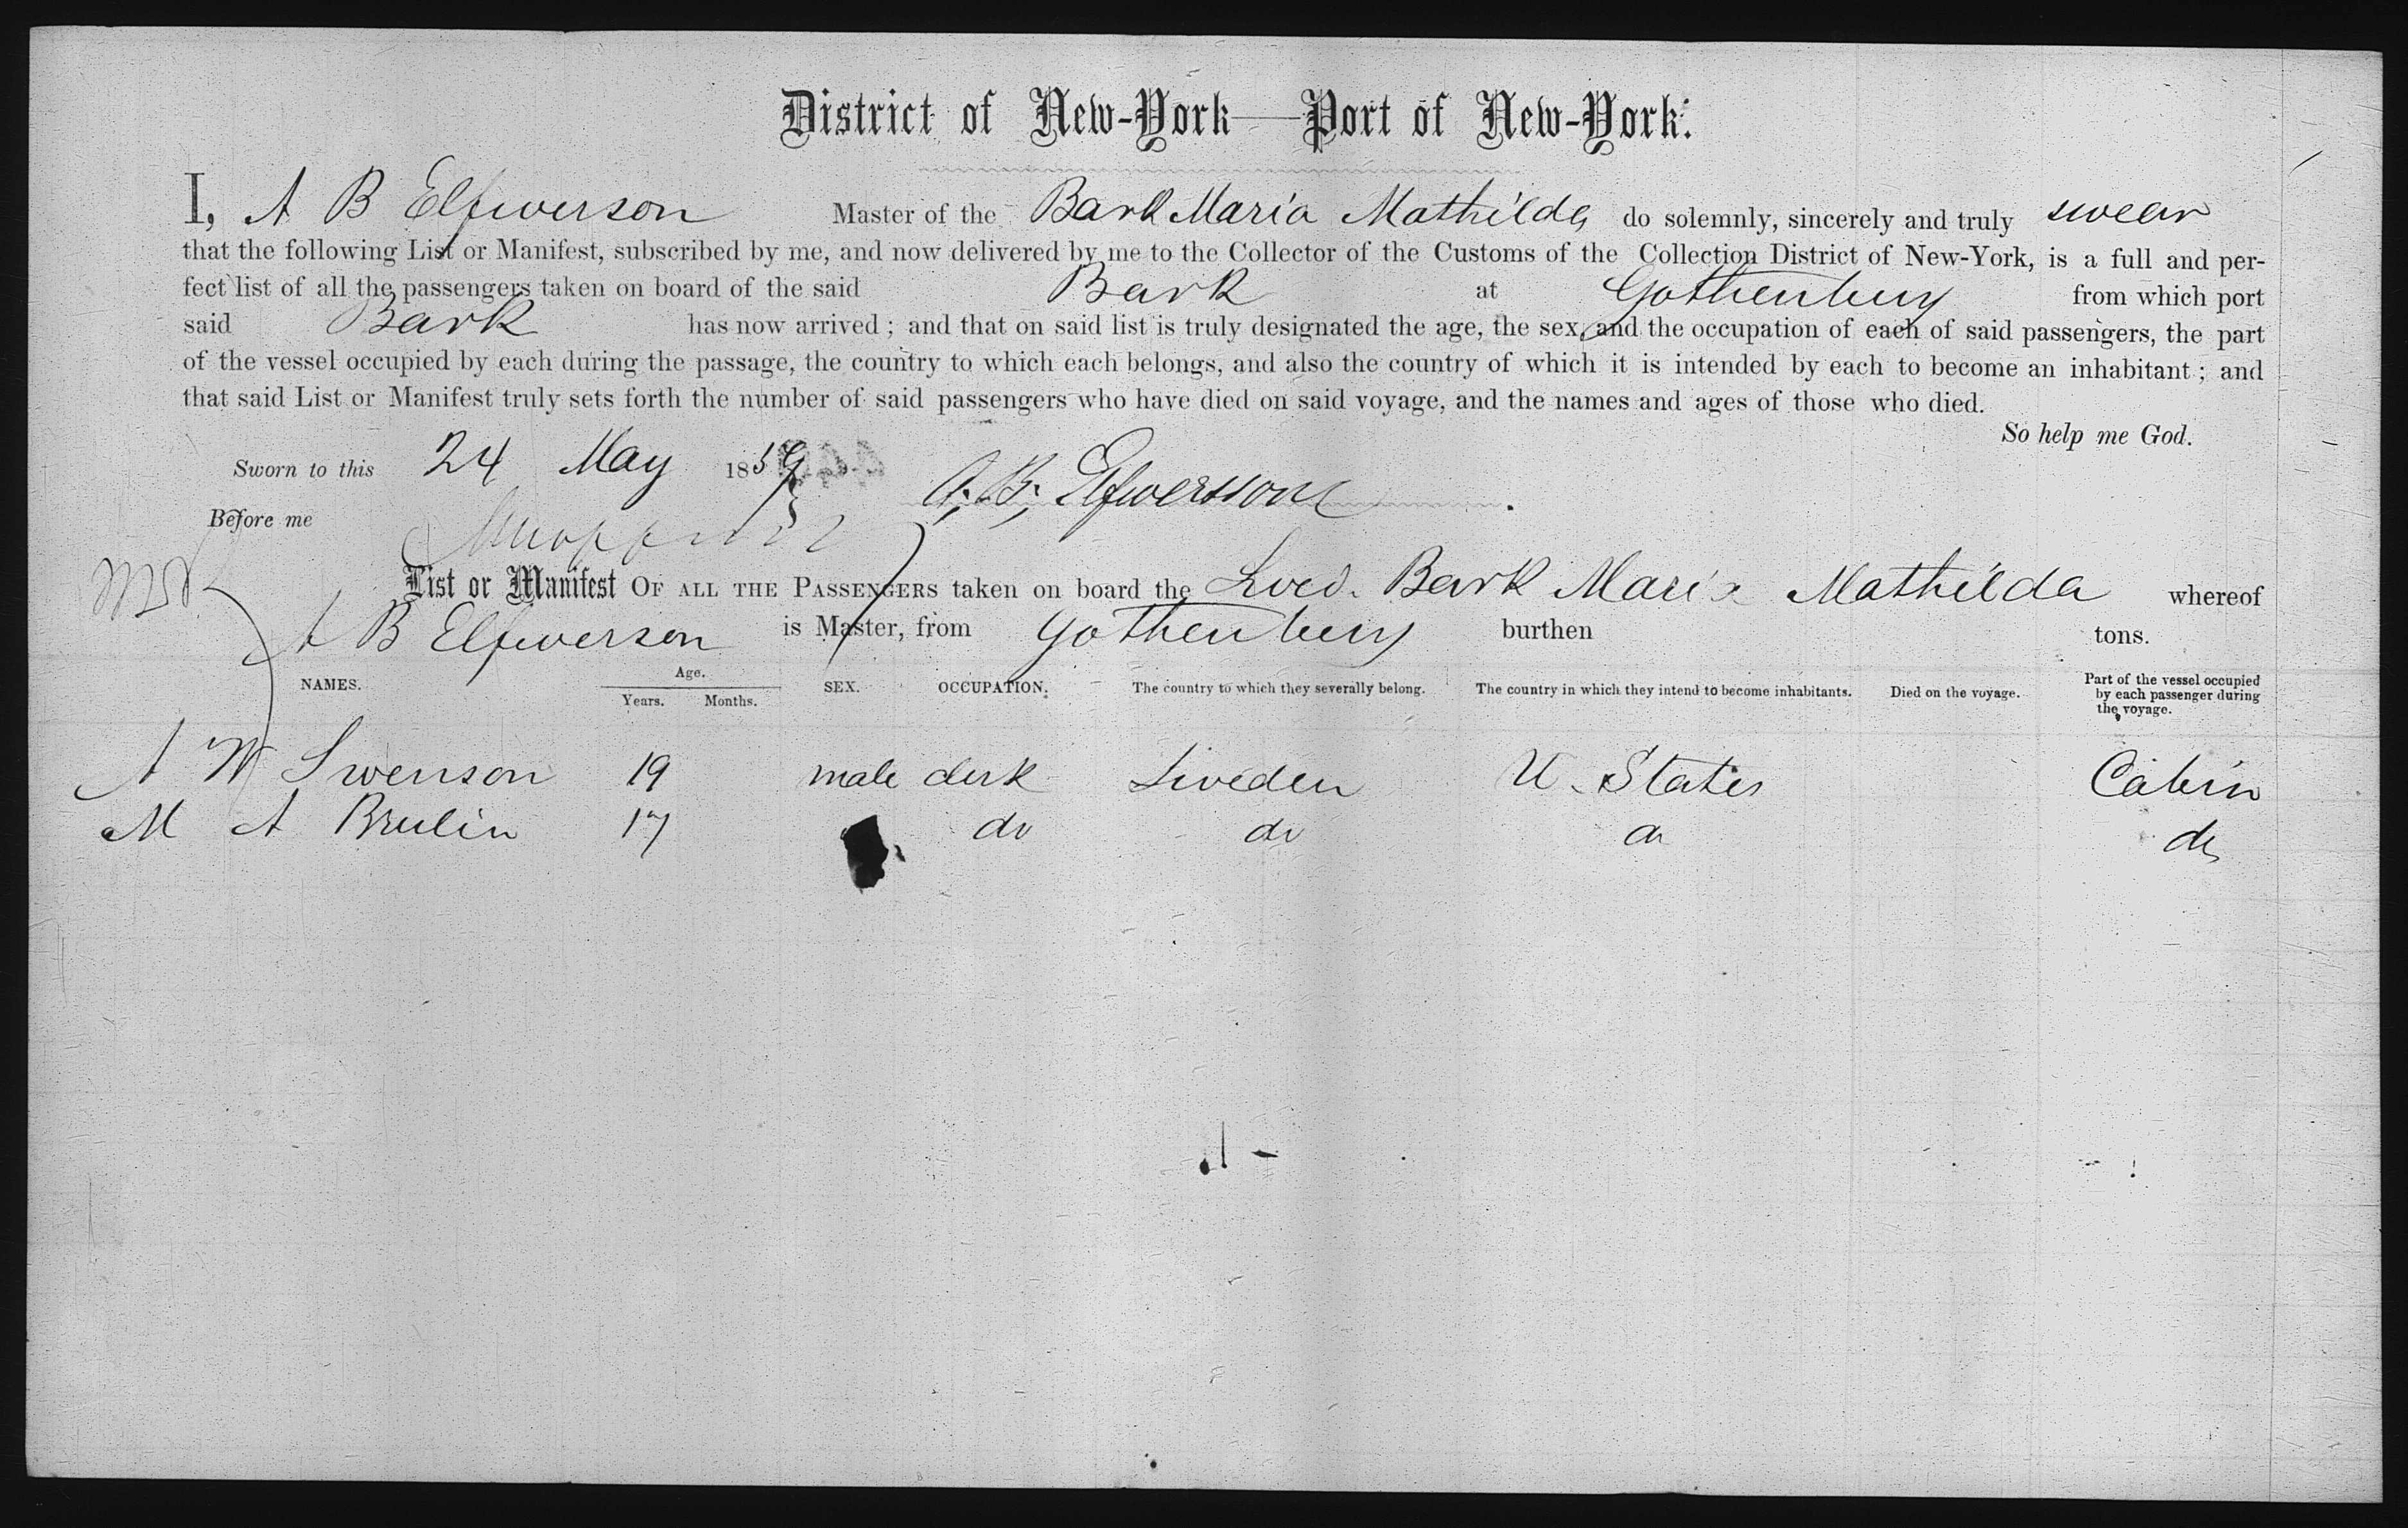 District of New-York—Port of New-York.
I, A B Elfwerson Master of the Bark Maria Mathilda do solemnly, sincerely and truly swear
that the following List or Manifest, subscribed by me, and now delivered by me to the Collector of the Customs of the Collection District of New-York, is a full and per-
fect list of all the passengers taken on board of the said Bark at Gothenburg from which port
said Bark has now arrived; and that on said list is truly designated the age, the sex, and the occupation of each of said passengers, the part
of the vessel occupied by each during the passage, the country to which each belongs, and also the country of which it is intended by each to become an inhabitant; and
that said List or Manifest truly sets forth the number of said passengers who have died on said voyage, and the names and ages of those who died.
So help me God.
Sworn to this 24 May 1859
A. B. Elfwersson
Before me
List or Manifest OF ALL THE PASSENGERS taken on board the Swed. Bark Maria Mathilda whereof
A B Elfwerson is Master, from Gothenburg burthen tons.
NAMES. Age. Years. Months. SEX. OCCUPATION. The country to which they severally belong. The country in which they intend to become inhabitants. Died on the voyage. Part of the vessel occupied by each passenger during the voyage.
A W Swenson 19 male clerk Sweden U. States Cabin
M A Brulin 17 do do do do